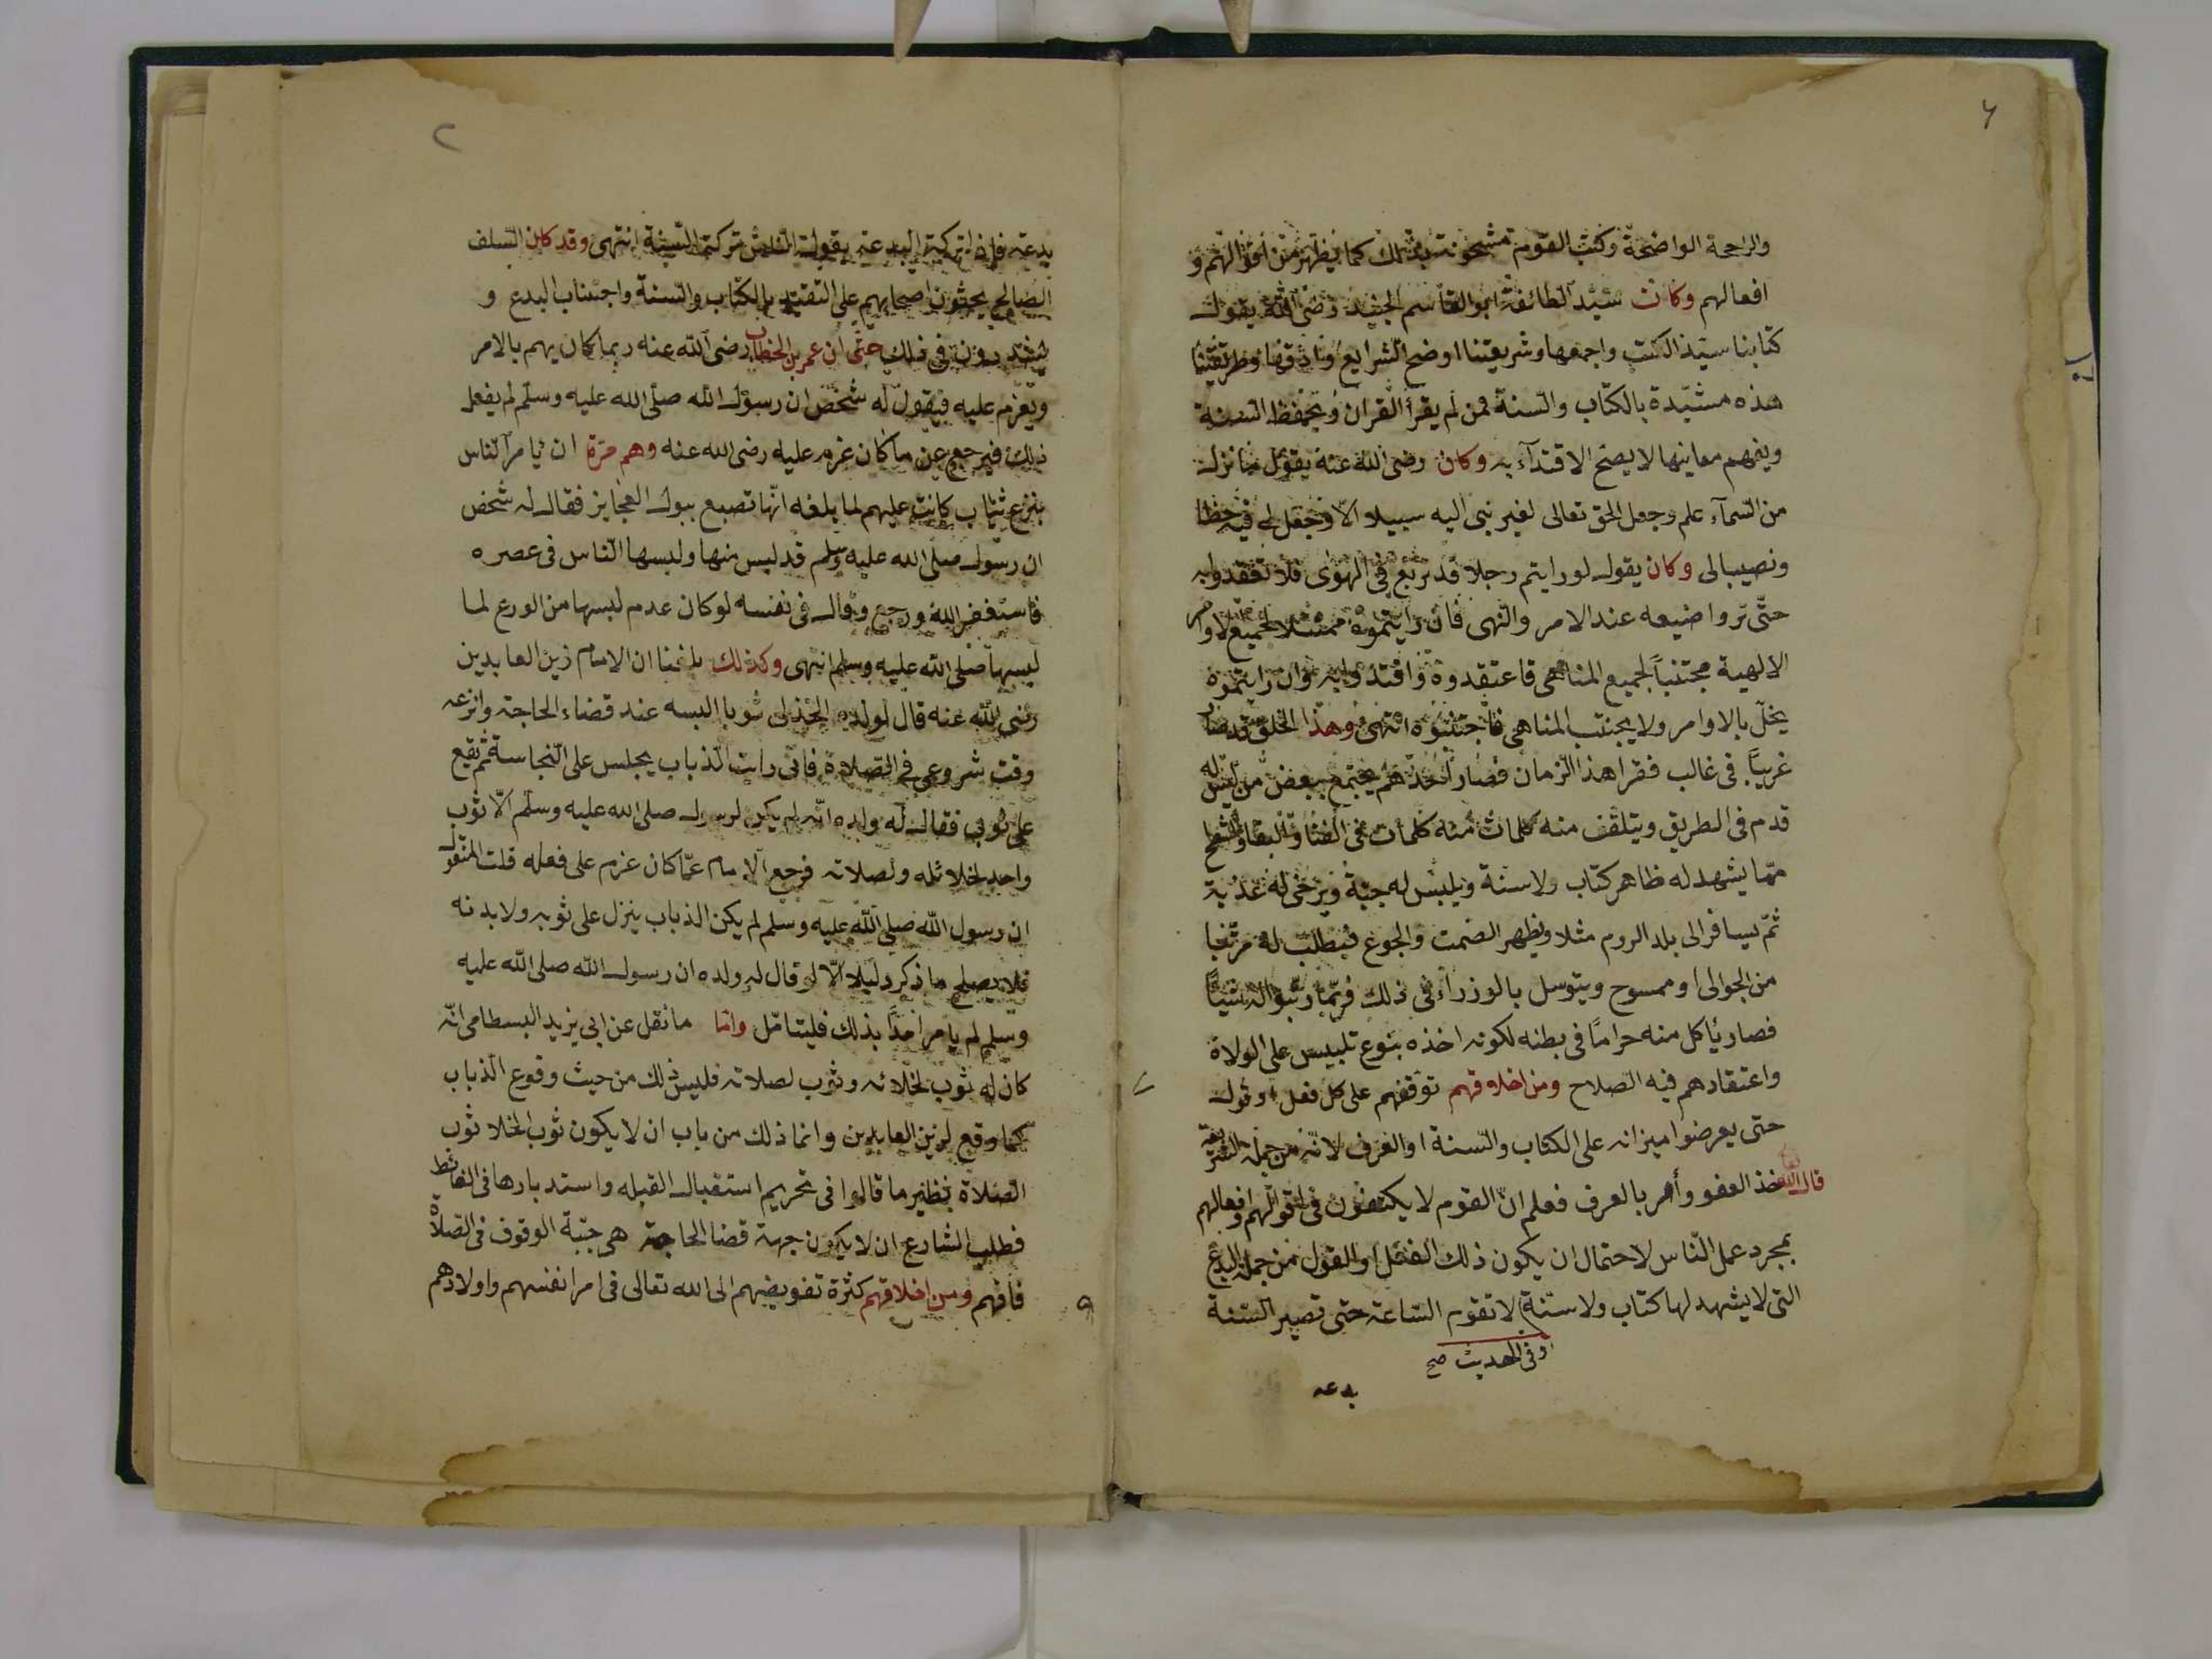 ٦
والراجحة الواضحة وكتب القوم مشحونة بذلك كما يظهر من اقوالهم و
افعالهم وكان سيد الطائفة ابو القاسم الجنيد رضى الله يقول
كتابنا سيد الكتب واجمعها وشريعتنا اوضح الشرايع وادقها وطريقتنا
هذه مشيّدة بالكتاب والسنة فمن لم يقرأ القرآن ويحفظ السنة
ويفهم معاينها لا يصح الاقتدآء به وكان رضى الله عنه يقول ما نزل
من السمآء علم وجعل الحق تعالى لغير نبى اليه سبيلا الا وجعل لى فيه حظا
ونصيبا لى وكان يقول لو رايتم رجلا قد تربع فى الهوى فلا تقتدوا به
حتّى تروا ضيعه عند الامر والنهى فان رايتموه ممتثلا لجميع الاوامر
الالهية مجتنباً لجميع المناهى فاعتقدوه واقتدوا به وان رايتموه
يخلّ بالاوامر ولا يجتنب المناهى فاجتنبوه انتهى وهذا الخلق قد صار
غريباً فى غالب فقرا هذا الزمان فصار احدهم يجتمع ببعض من ليس له
قدم فى الطريق ويتلقف منه كلمات منه كلمات فى الفنا والبقا والشطح
ممّا يشهد له ظاهر كتاب ولا سنة ويلبس له جبّة ويرخى له عذبة
ثمّ يسافر الى بلد الروم مثلا ويظهر الصمت والجوع فيطلب له مرتّبا
من الجوالى او ممسوح ويتوسل بالوزرآء فى ذلك فربّما رتّبوا له شيأً
فصار يأكل منه حراماً فى بطنه لكونه اخذه بنوع تلبيس على الولاة
واعتقادهم فيه الصلاح ومن اخلاقهم توقفهم على كل فعل او قول
حتى يعرضوا ميزانه على الكتاب والسنة او العرف لانه من جملة الشريعة
قال الله خذ العفو وأمر بالعرف فعلم انّ القوم لا يكتفون فى اقوالهم وافعالهم
بمجرد عمل النّاس لاحتمال ان يكون ذلك الفعل او القول من جملة البدع
التى لا يشهد لها كتاب ولا سنّة لا تقوم السّاعة حتى تصير السنة
وفى الحديث صح
بدعه
٢
بدعة فاذا تركت البدعة يقول الناس تركت السنة انتهى وقد كان السلف
الصالح يحثون اصحابهم على التقيد بالكتاب والسنة واجتناب البدع و
يشددون فى ذلك حتى ان عمر بن الخطاب رضى الله عنه ربما كان يهم بالامر
ويعزم عليه فيقول له شخص ان رسول الله صلى الله عليه وسلم لم يفعل
ذلك فيرجع عن ما كان عزم عليه رضى الله عنه وهم مرّة ان يأمر الناس
بنزع ثياب كانت عليهم لما بلغه انها تصبع ببول العجايز فقال له شخص
ان رسول صلى الله عليه وسلم قد لبس منها ولبسها الناس فى عصره
فاستغفر الله ورجع وقال فى نفسه لو كان عدم لبسها من الورع لما
لبسها صلى الله عليه وسلم انتهى وكذلك بلغنا ان الامام زين العابدين
رضى الله عنه قال لولده اتخذ لى ثوبا البسه عند قضاء الحاجة وانزعه
وقت شروعى فى الصلاة فانى رايت الذباب يجلس على النجاسة ثم يقع
على ثوبى فقال له ولده انّه لم يكن لرسول صلى الله عليه وسلم الّا ثوب
واحد لخلائه ولصلاته فرجع الامام عمّا كان عزم على فعله قلت المنقول
ان رسول الله صلى الله عليه وسلم لم يكن الذباب ينزل على ثوبه ولا بدنه
فلا يصلح ما ذكر دليلا الّا لو قال له ولده ان رسول الله صلى الله عليه
وسلم لم يامر احداً بذلك فليتامّل وانما ما نقل عن ابى يزيد البسطامى انّه
كان له ثوب لخلائه وثوب لصلاته فليس ذلك من حيث وقوع الذباب
كما وقع لزين العابدين وانما ذلك من باب ان لا يكون ثوب الخلا ثوب
الصلاة نظير ما قالوا فى تحريم استقبال القبله واستدبارها فى الغائط
فطلب الشارع ان لا يكون جهة قضا الحاجة هى جهة الوقوف فى الصلاة
فافهم ومن اخلاقهم كثرة تفويضهم الى الله تعالى فى امر انفسهم واولادهم